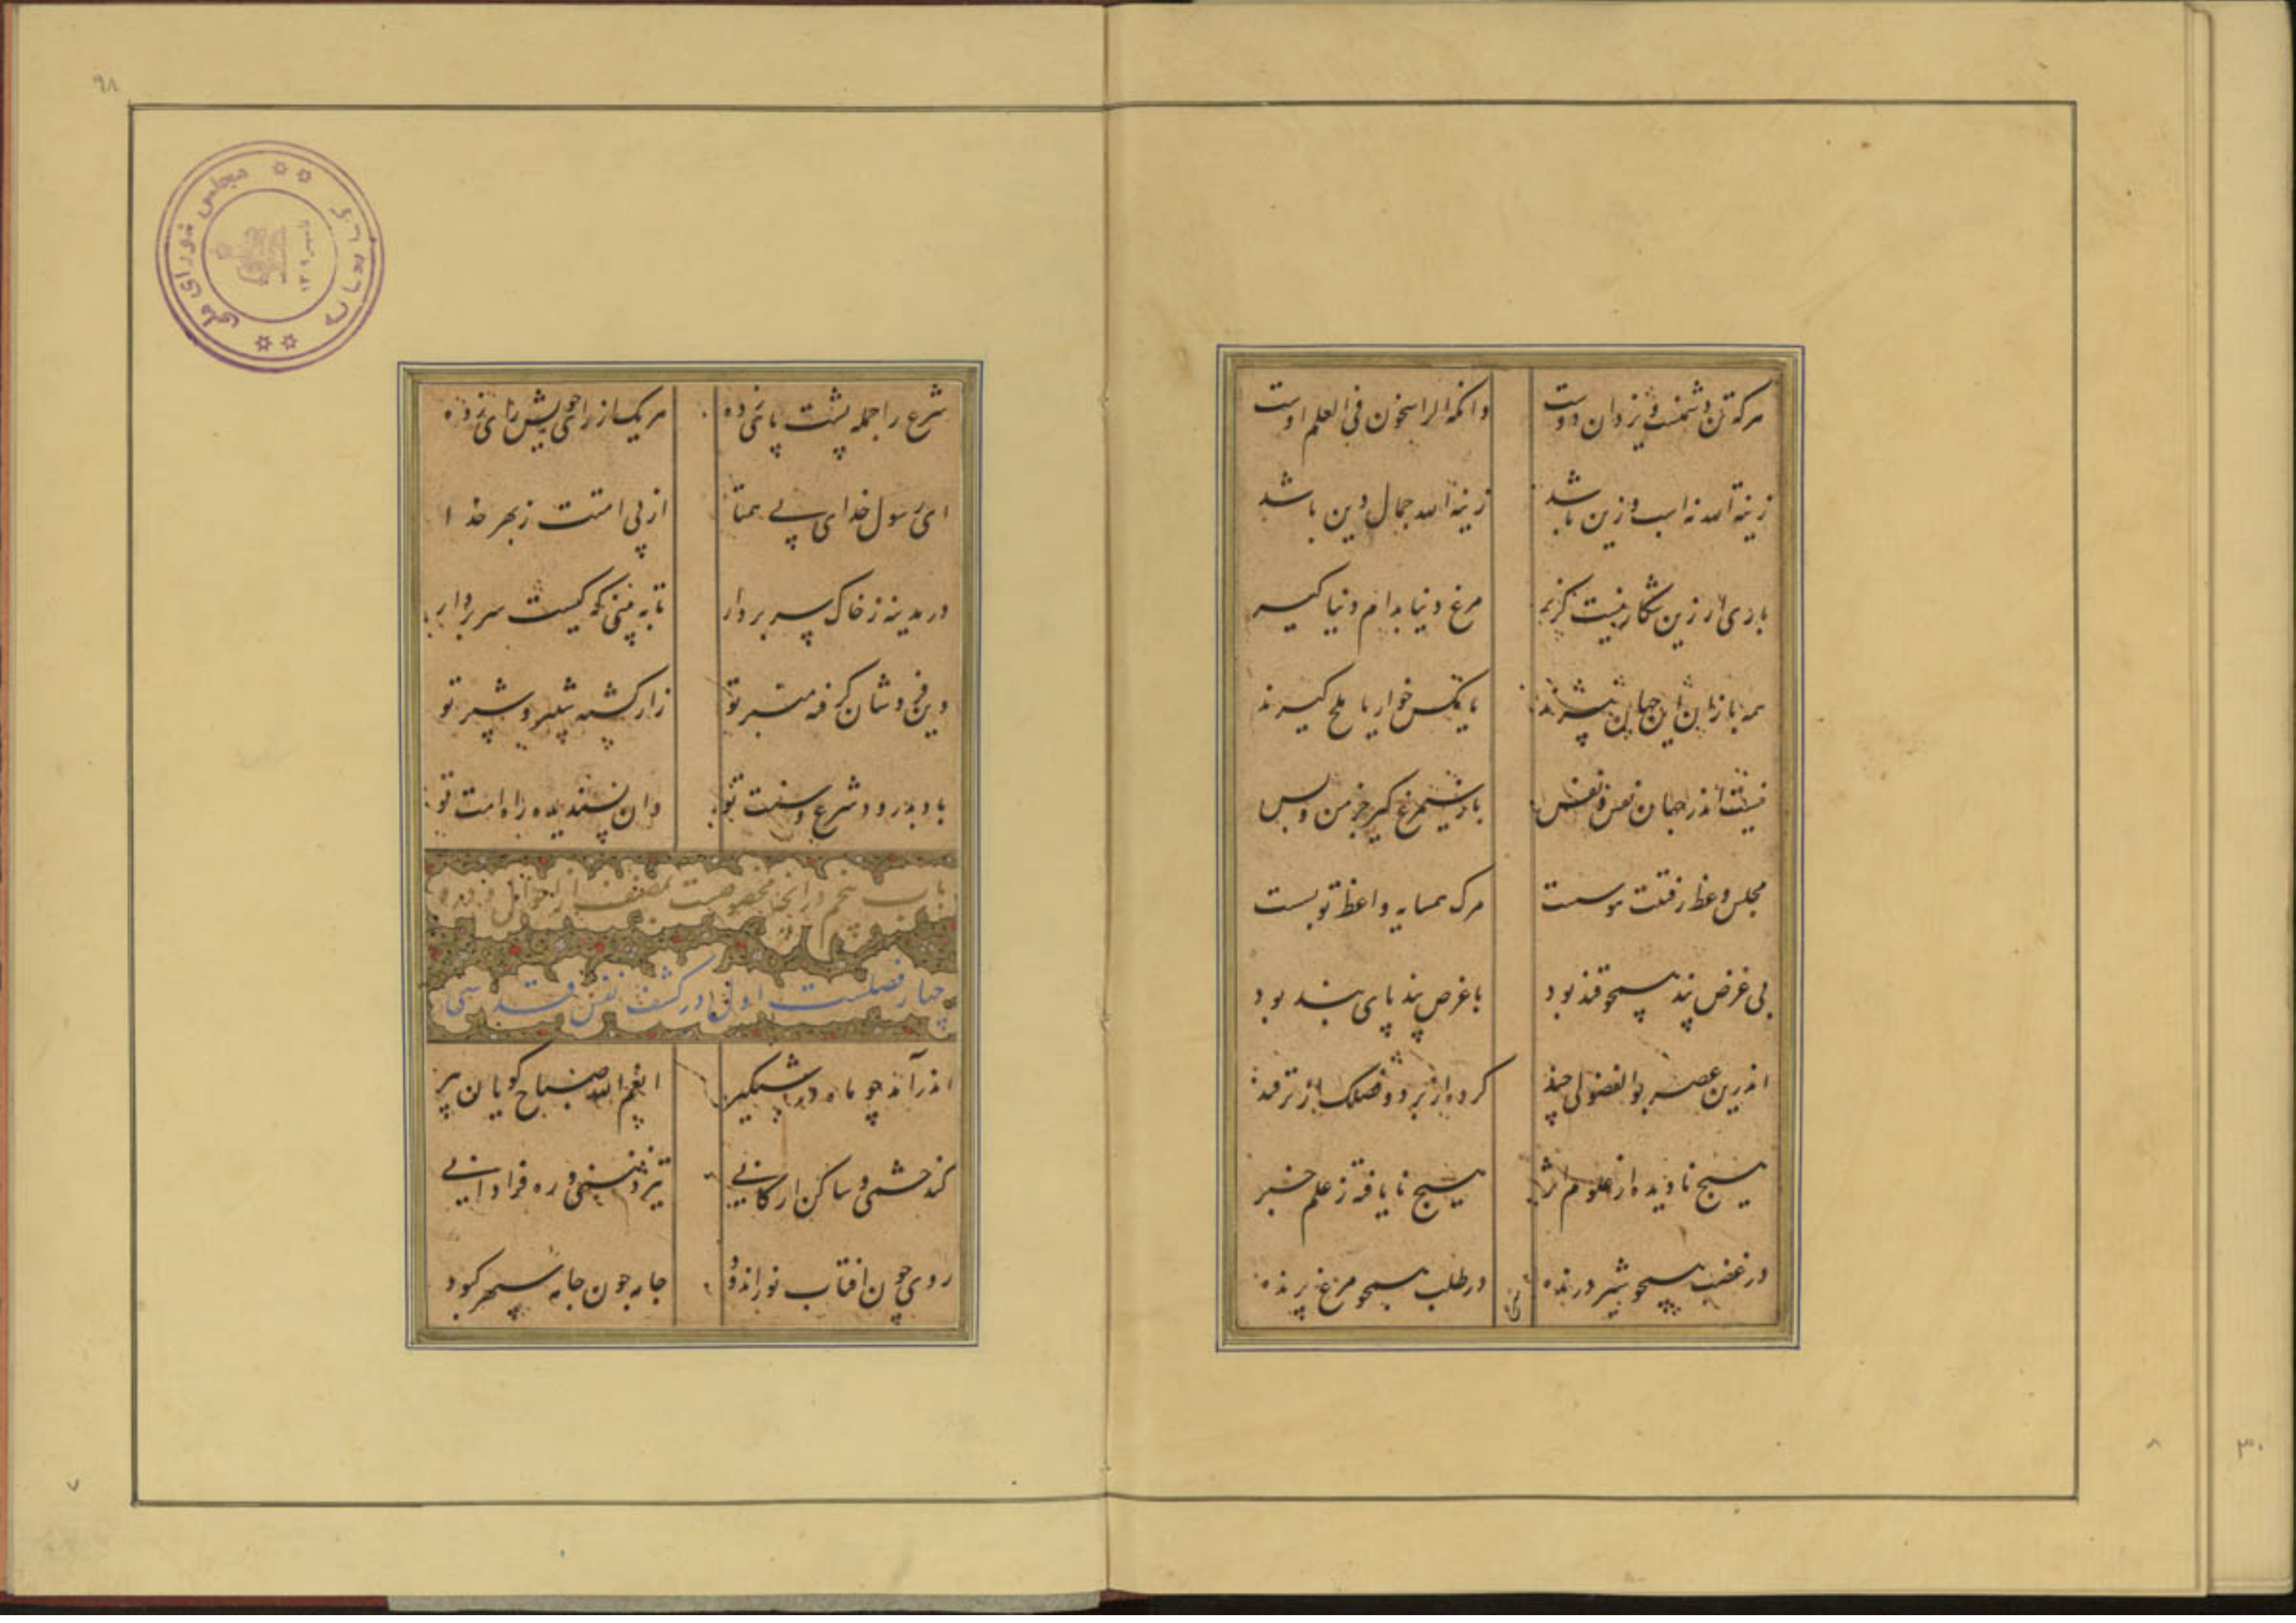 هرکه تن دشمنست و یزدان دوست وانکه الراسخون فی العلم اوست
زینة الله نه اسب و زین باشد زینة الله جمال دین باشد
بازی ار زین شکار نیست گزیر مرغ دنیا بدام دنیا گیر
همه بازان این جهان پیرند یا مگس خوار یا ملخ گیرند
نیست اندر جهان نفس و نفس باز سیمرغ گیر جز من و بس
مجلس وعظ رفتنت هوسست مرک همسایه واعظ تو بست
بی غرض پند همچو قند بود با غرض پند پای بند بود
اندرین عصر بوالفضولی چند کرده از بر دو فصلک از ترفند
هیچ نادیده از علوم اثر هیچ نایافته ز علم خبر
در غضب همچو شیر درنده در طلب همچو مرغ پرنده
شرع را جمله پشت پای زده هر یک از رای خویش رای زده
ای رسول خدای بی همتا از پی امتت ز بهر خدا
در مدینه ز خاک سر بردار تا به بینی که کیست بر سر دار
دین فروشان گرفته منبر تو زار کشته شبیر و شبر تو
باد بدرود شرع و سنت تو وان پسندیده راه امت تو
باب پنجم در انچه مخصوصست بمصنف از احوال و درو
چهار فصلست اول در کشف نفس قدسی
اندر آمد چو ماه در شبگیر انعم الله صباح گویان پیر
کند خشمی و ساکن ارکانی تیز مغزی و ره فرا دانی
روی چون افتاب نور اندود جامه چون جامه سپهر کبود
مجلس شورای ملی
کتابخانه
۹۸
۷
۸
۳۰